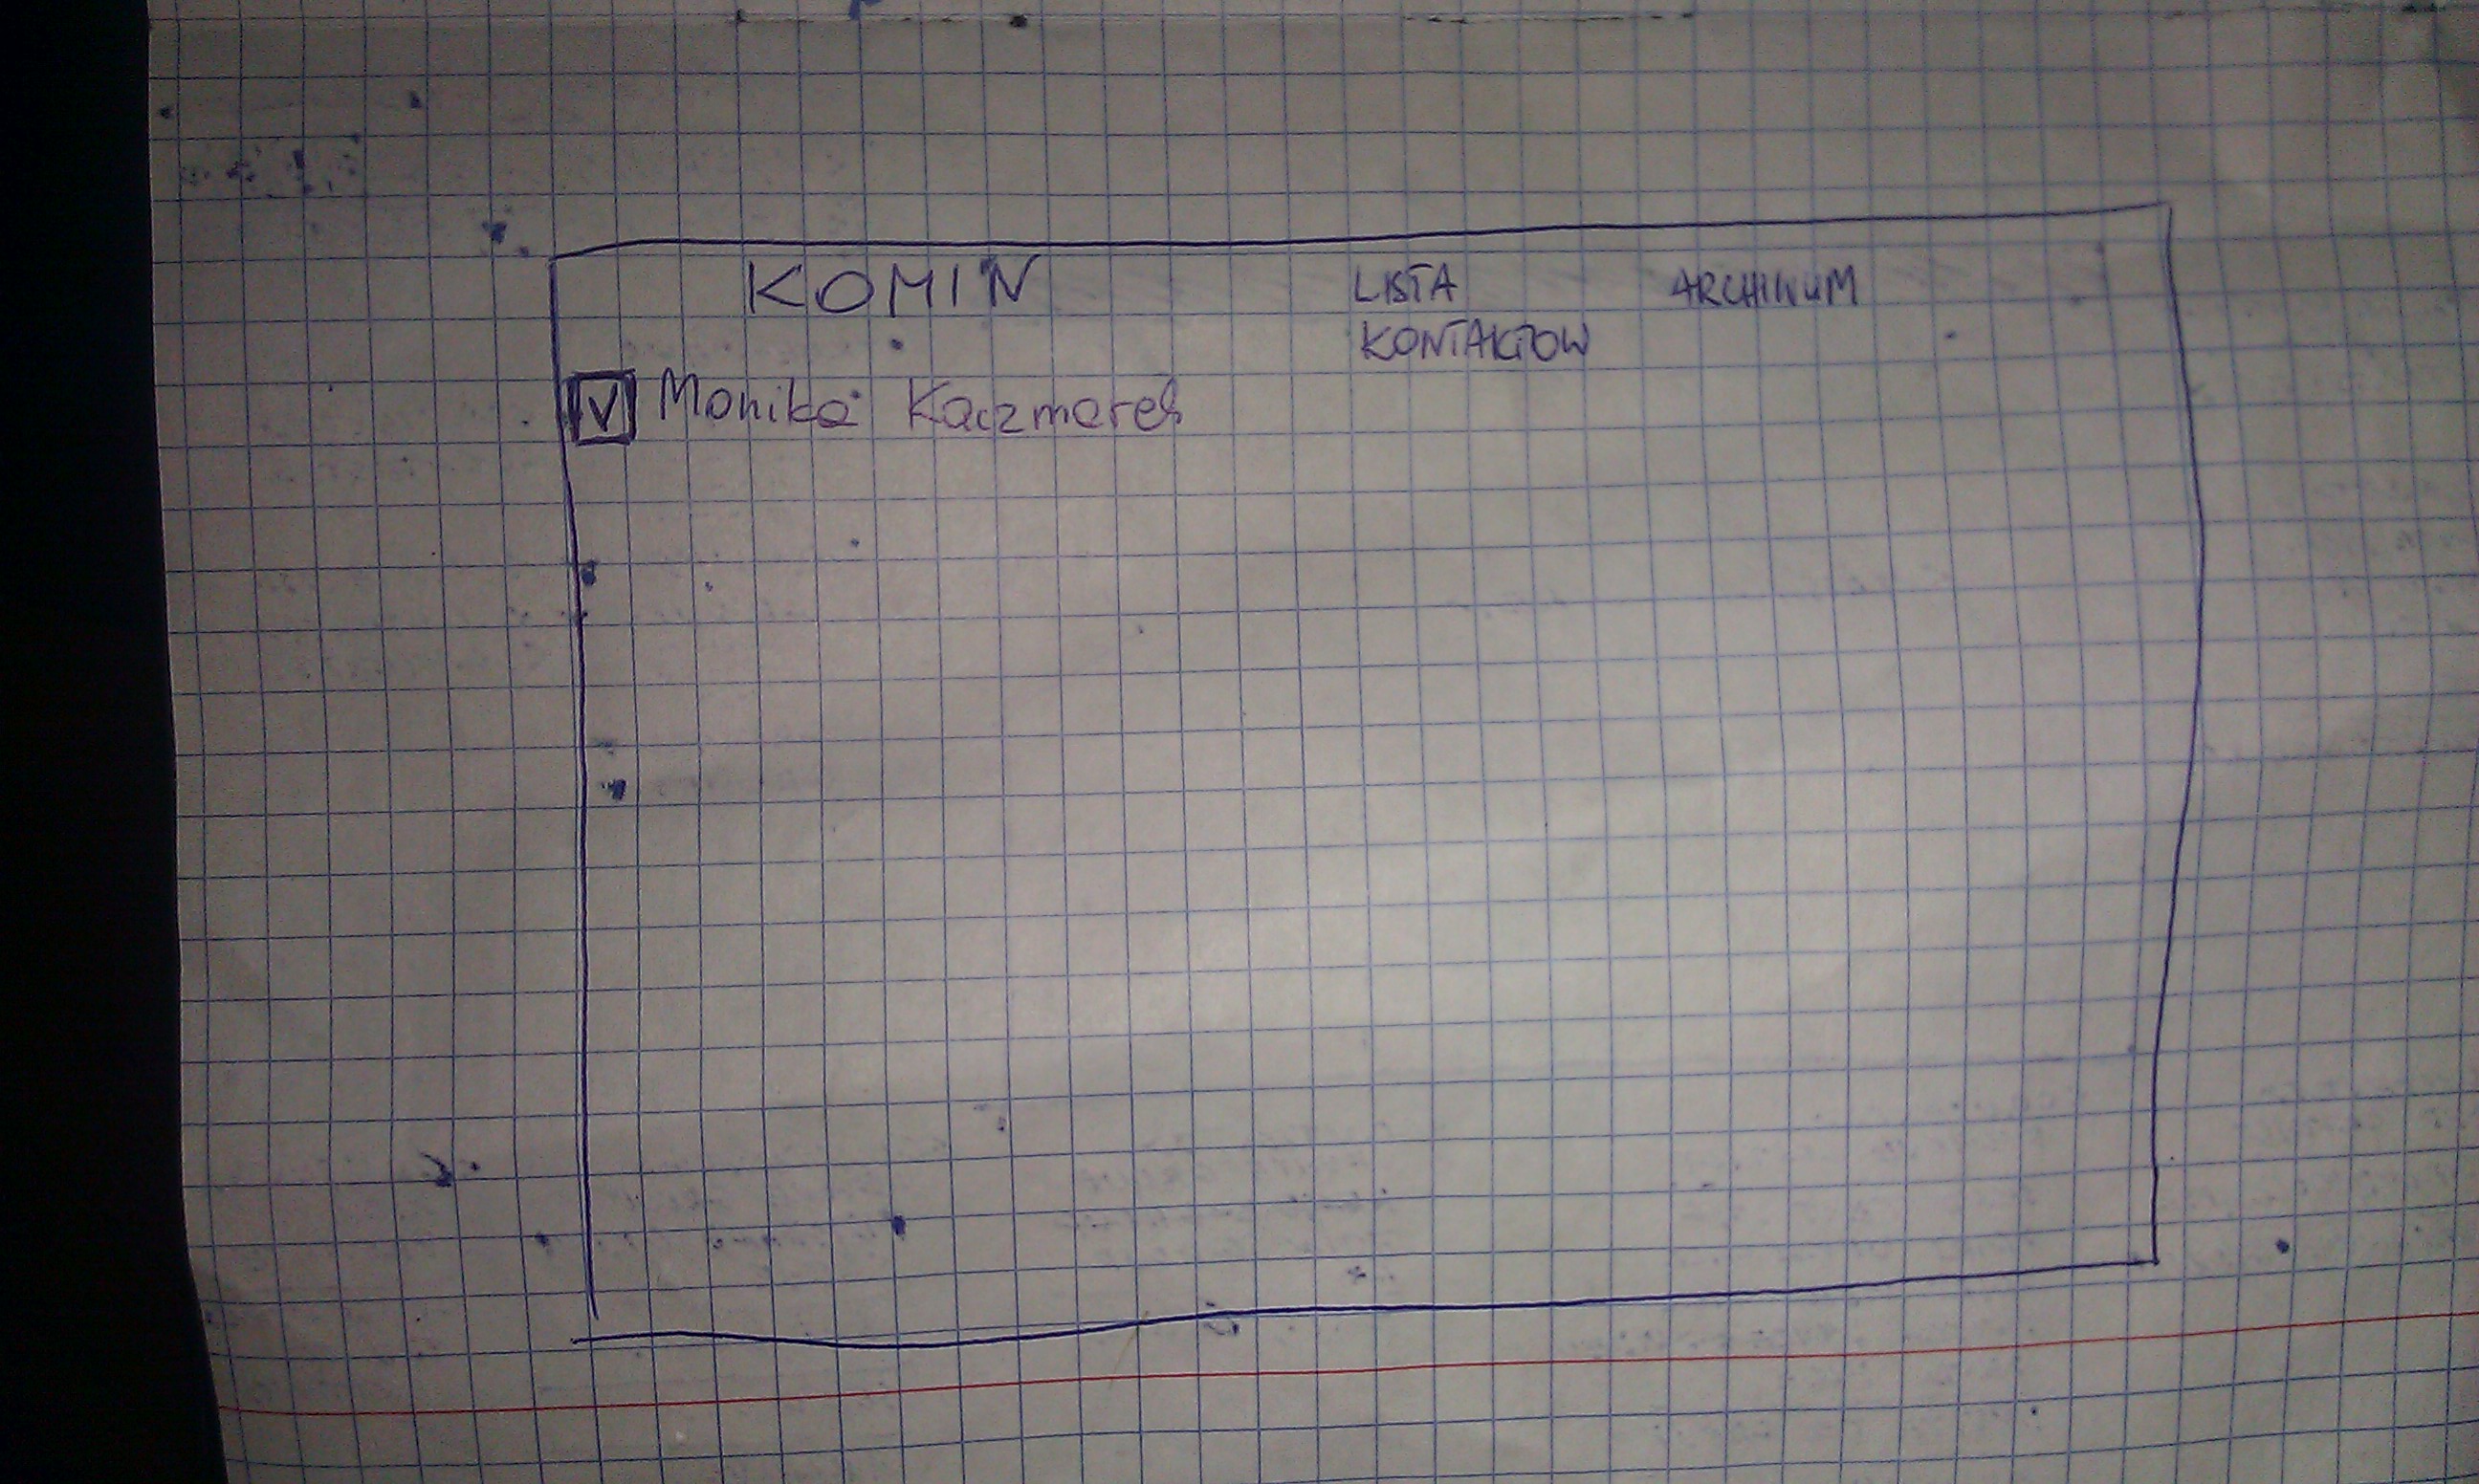 KOMIN
LISTA
KONTAKTOW
ARCHIWUM
V Monika Kaczmarek